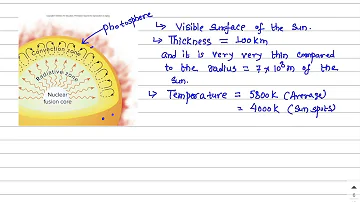 photosphere
Convection zone
Radiative zone
Nuclear
fusion core
↳ Visible surface of the sun.
↳ Thickness = 100km
and it is very very thin compared
to the radius = 7×10⁸m of the
sun.
↳ Temperature = 5800K (Average)
= 4000K (Sun spots)